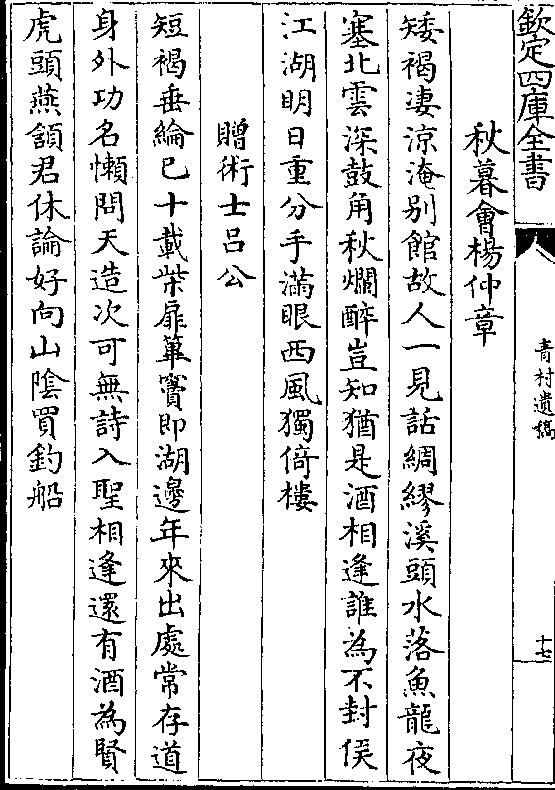 欽定四庫全書
青村遺稿
十七
秋暮會楊仲章
矮褐凄涼淹别館故人一見話綢繆溪頭水落魚龍夜
塞北雲深鼓角秋爛醉豈知猶是酒相逢誰為不封侯
江湖明日重分手滿眼西風獨倚樓
贈術士吕公
短褐垂綸已十載柴扉篳竇即湖邊年來出處常存道
身外功名懶問天造次可無詩入聖相逢還有酒為賢
虎頭燕頷君休論好向山隂買釣船